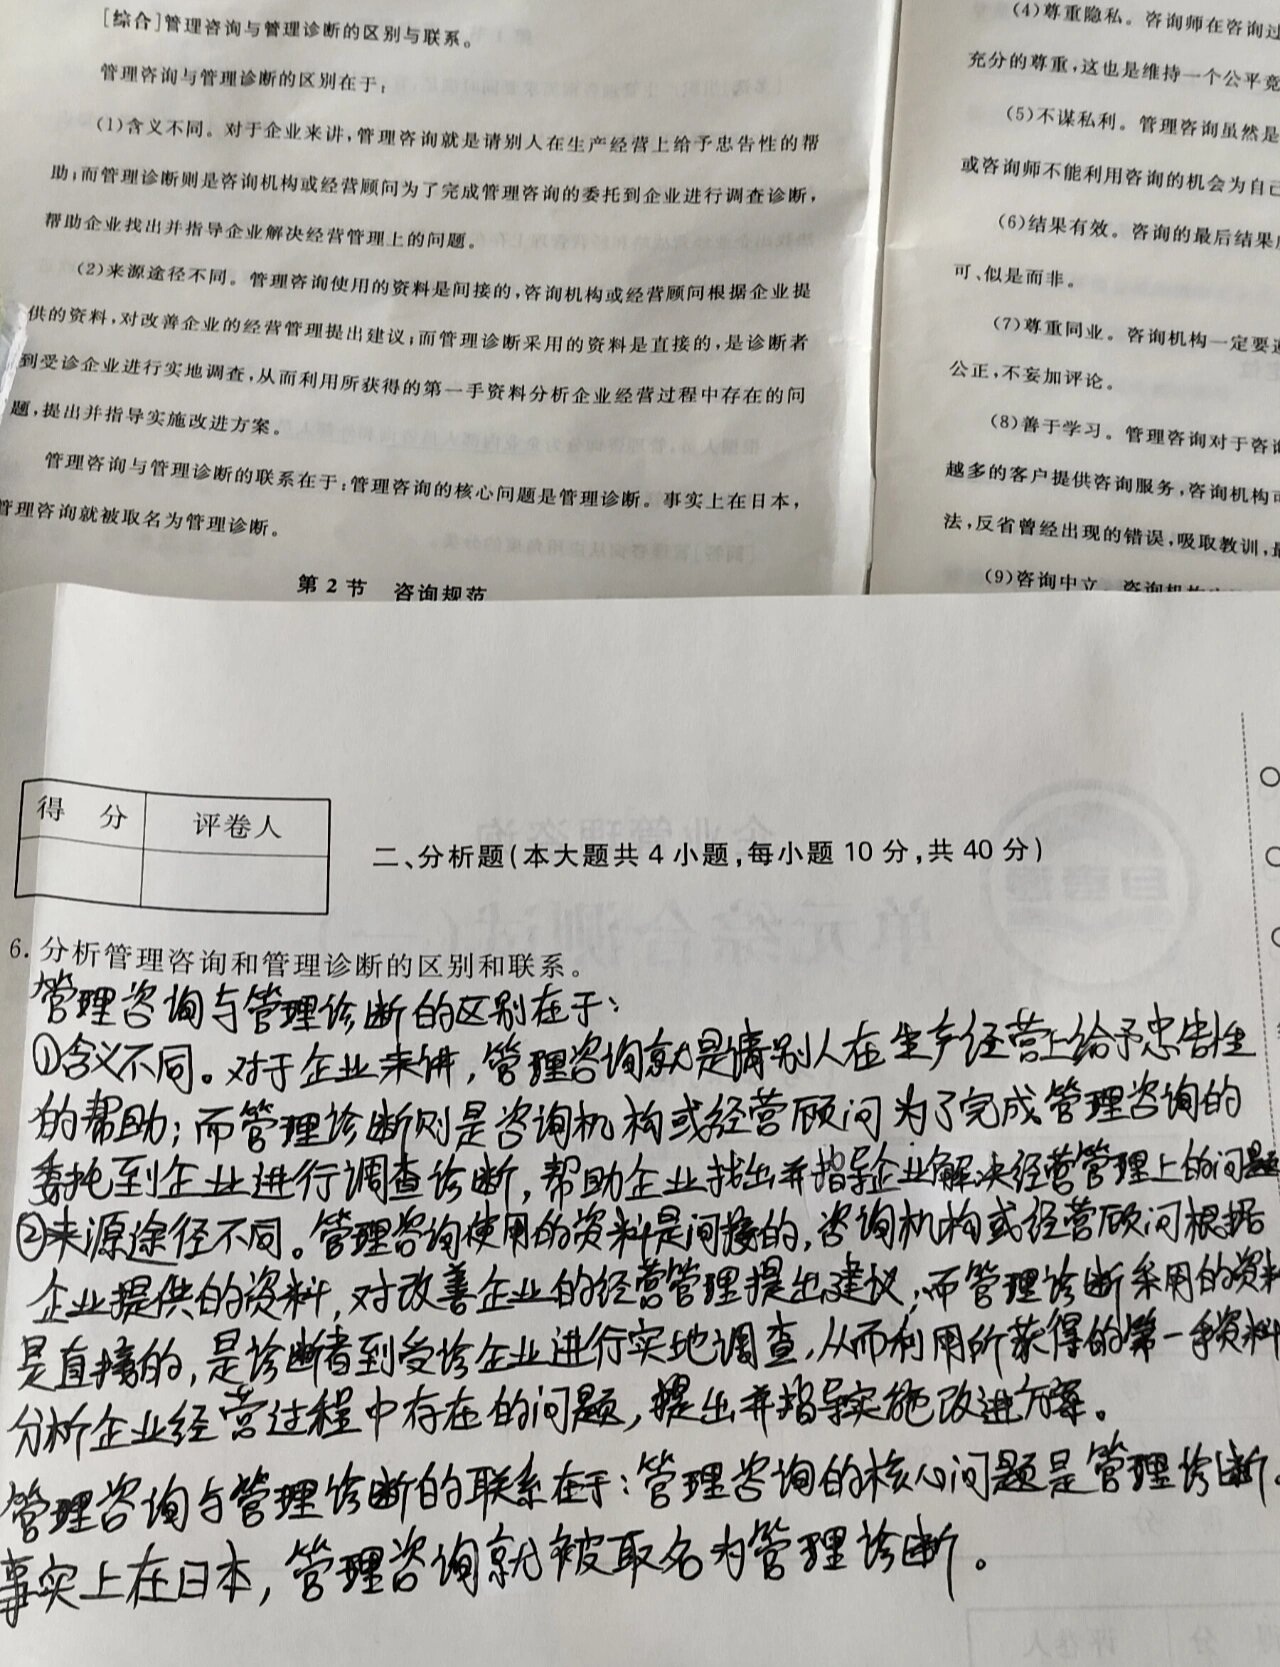 [综合]管理咨询与管理诊断的区别与联系。
管理咨询与管理诊断的区别在于:
(1)含义不同。对于企业来讲,管理咨询就是请别人在生产经营上给予忠告性的帮
助;而管理诊断则是咨询机构或经营顾问为了完成管理咨询的委托到企业进行调查诊断,
帮助企业找出并指导企业解决经营管理上的问题。
(2)来源途径不同。管理咨询使用的资料是间接的,咨询机构或经营顾问根据企业提
供的资料,对改善企业的经营管理提出建议;而管理诊断采用的资料是直接的,是诊断者
到受诊企业进行实地调查,从而利用所获得的第一手资料分析企业经营过程中存在的问
题,提出并指导实施改进方案。
管理咨询与管理诊断的联系在于:管理咨询的核心问题是管理诊断。事实上在日本,
管理咨询就被取名为管理诊断。
第2节 咨询规范
(4)尊重隐私。咨询师在咨询过
充分的尊重,这也是维持一个公平竞
(5)不谋私利。管理咨询虽然是
或咨询师不能利用咨询的机会为自己
(6)结果有效。咨询的最后结果
可、似是而非。
(7)尊重同业。咨询机构一定要
公正,不妄加评论。
(8)善于学习。管理咨询对于咨
越多的客户提供咨询服务,咨询机构
法,反省曾经出现的错误,吸取教训,
(9)咨询中立。咨询机构
得 分
评卷人
二、分析题(本大题共4小题,每小题10分,共40分)
6. 分析管理咨询和管理诊断的区别和联系。
管理咨询与管理诊断的区别在于:
①含义不同。对于企业来讲,管理咨询就是请别人在生产经营上给予忠告性
的帮助;而管理诊断则是咨询机构或经营顾问为了完成管理咨询的
委托到企业进行调查诊断,帮助企业找出并指导企业解决经营管理上的问题
②来源途径不同。管理咨询使用的资料是间接的,咨询机构或经营顾问根据
企业提供的资料,对改善企业的经营管理提出建议;而管理诊断采用的资料
是直接的,是诊断者到受诊企业进行实地调查,从而利用所获得的第一手资料
分析企业经营过程中存在的问题,提出并指导实施改进方案。
管理咨询与管理诊断的联系在于:管理咨询的核心问题是管理诊断。
事实上在日本,管理咨询就被取名为管理诊断。